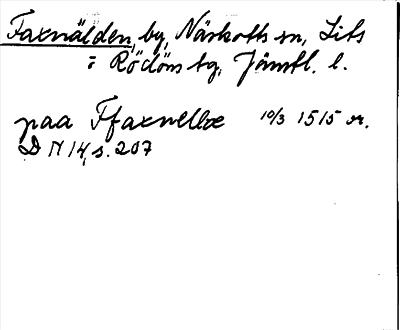 Faxnälden, by, Näskotts sn, Lits
o Rödöns tg, Jämtl. l.
paa Ffaxnellæ 10/3 1515 or.
DN 14, s. 207